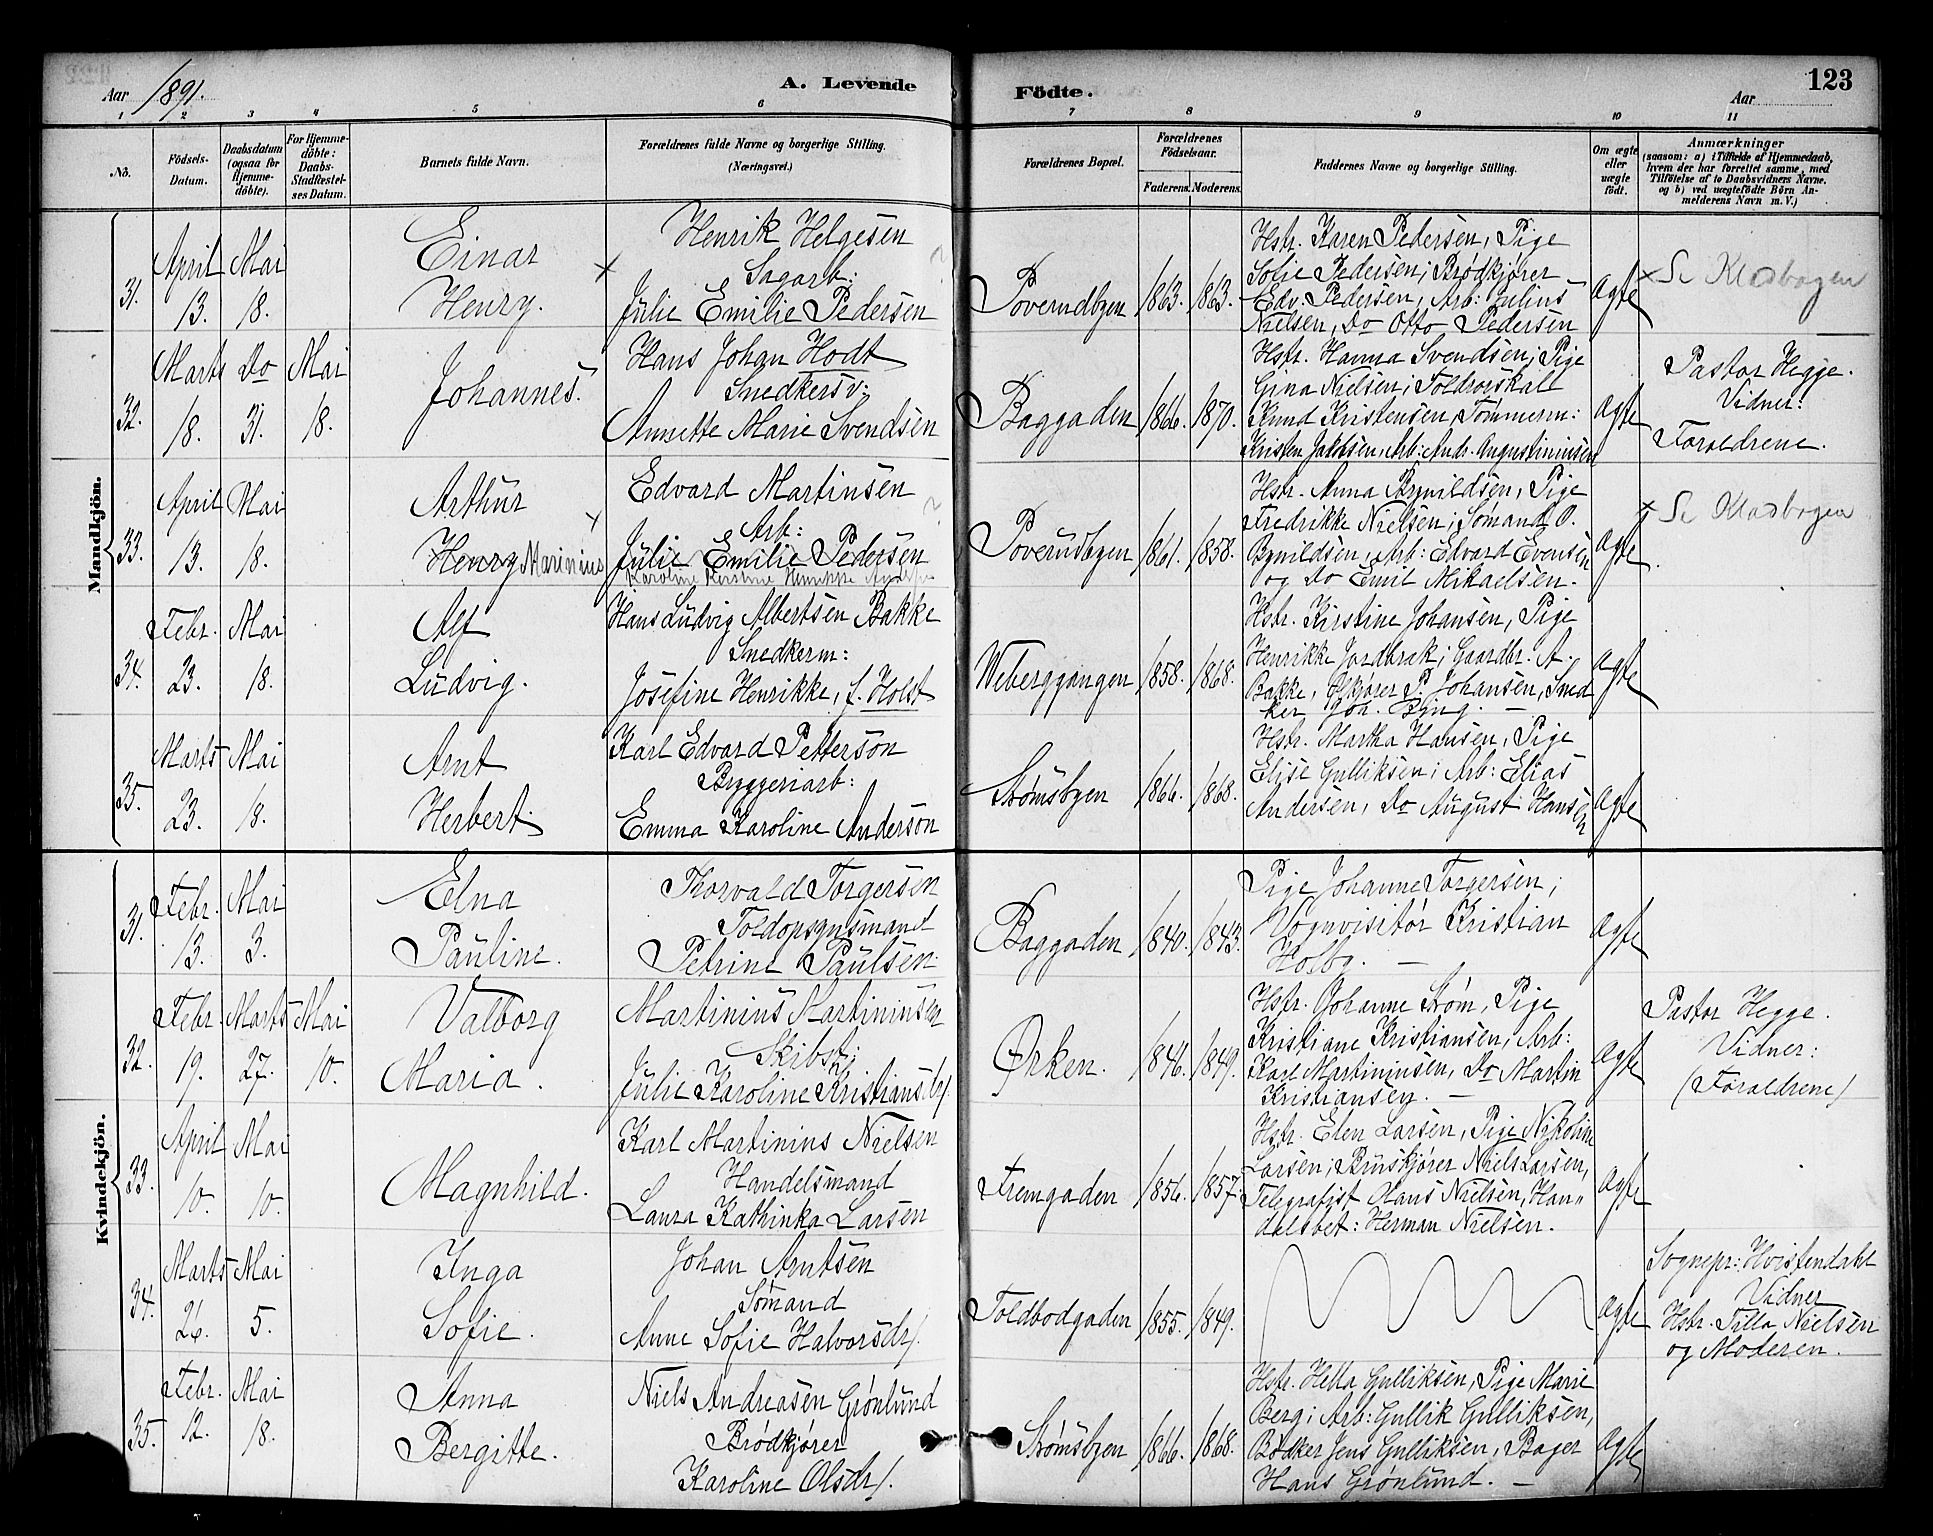 123
Aar 1891. A. Levende Födte. Aar
1 2 3 4 5 6 7 8 9 10 11
No. Födsels-Datum. Daabsdatum (ogsaa for Hjemmedöbte). For Hjemmedöbte: Daabs-Stadfæstelses Datum. Barnets fulde Navn. Forældrenes fulde Navne og borgerlige Stilling. (Næringsvei.) Forældrenes Bopæl. Forældrenes Födselsaar. Faderens. Moderens. Faddernes Navne og borgerlige Stilling. Om ægte eller uægte födt. Anmærkninger (saasom: a) i Tilfælde af Hjemmedaab, hvem der har forrettet samme, med Tilföielse af to Daabsvidners Navne, og b) ved uægtefödte Börn Anmelderens Navn m. V.)
Mandkjön.
31. April 13. Mai 18.
Einar
Henry.
Henrik Helgesen
Sagarb:
Julie Emilie Pedersen
Poverudbyen 1863. 1863.
Hstr. Karen Pedersen, Pige
Sofie Pedersen; Brødkjører
Edv. Pedersen, Arb: Julius
Nielsen, Do Otto Pedersen
Ægte
× Se Kladbogen
32. Marts 18. Do 31. Mai 18.
Johannes.
Hans Johan Hodt
Snedkersv:
Annette Marie Svendsen
Baggaden 1866. 1870.
Hstr. Hanna Svendsen; Pige
Gina Nielsen; Toldrorskall
Knud Kristensen, Tømmerm:
Kristen Jakobsen, Arb: Andr. Augustiniusen
Ægte
Pastor Hegge.
Vidner:
Forældrene.
33. April 13. Mai 18.
Arthur
Henry Marinius
Edvard Martinsen
Arb:
Julie Emilie Pedersen
Karoline Kirstine
Poverudbyen 1861. 1858.
Hstr. Anna Brynildsen, Pige
Fredrikke Nielsen; Sømand O.
Brynildsen, Arb: Edvard Evensen
og Do Emil Mikaelsen.
Ægte
× Se Kladbogen
34. Febr. 23. Mai 18.
Alf
Ludvig.
Hans Ludvig Albertsen Bakke
Snedkerm:
Josefine Henrikke, f. Holst
Weberggangen 1858. 1868.
Hstr. Kirstine Johansen, Pige
Henrikke Jordbrak; Gaardbr. A.
Bakke, Ølkjører P. Johansen, Sned
ker Joh. Bing.
Ægte
35. Marts 23. Mai 18.
Arnt
Herbert
Karl Edvard Petterson
Bryggeriarb:
Emma Karoline Anderson
Strømsbyen 1866. 1868.
Hstr. Martha Hansen, Pige
Elise Gulliksen; Arb: Elias
Andersen, Do August Hansen
Ægte
Kvindekjön.
31. Febr. 13. Mai 3.
Elna
Pauline.
Thorvald Torgersen
Toldopsynsmand
Petrine Paulsen
Baggaden 1840. 1843.
Pige Johanne Torgersen;
Vognvisitør Kristian
Holby.
Ægte
32. Febr. 19. Marts 27. Mai 10.
Valborg
Maria.
Martinius Martiniusen
Skibst:
Julie Karoline Kristiansdr/
Ørken. 1846. 1849.
Hstr. Johanne Strøm, Pige
Kristiane Kristiansen; Arb:
Karl Martiniusen, Do Martin
Kristiansen.
Ægte
Pastor Hegge.
Vidner:
(Forældrene)
33. April 10. Mai 10.
Magnhild.
Karl Martinius Nielsen
Handelsmand
Laura Kathinka Larsen
Fremgaden 1856. 1857.
Hstr. Elen Larsen, Pige Nikoline
Larsen; Bruskjører Niels Larsen,
Telegrafist Hans Nielsen, Han-
delsbet: Herman Nielsen.
Ægte
34. Marts 26. Mai 5.
Inga
Sofie.
Johan Arntsen
Sømand
Anne Sofie Halvorsdr/
Toldbodgaden 1855. 1849.
Ægte
Sognepr: Hvistendahl
Vidner
Hstr. Tilla Nielsen
og Moderen.
35. Febr. 12. Mai 18.
Anna
Bergitte.
Niels Andreasen Grønlund
Brødkjører
Karoline Olsdr/.
Strømsbyen 1866. 1868.
Hstr. Hella Gulliksen, Pige Marie
Berg; Arb: Gullik Gulliksen,
Bødker Jens Gulliksen, Bager
Hans Grønlund.
Ægte